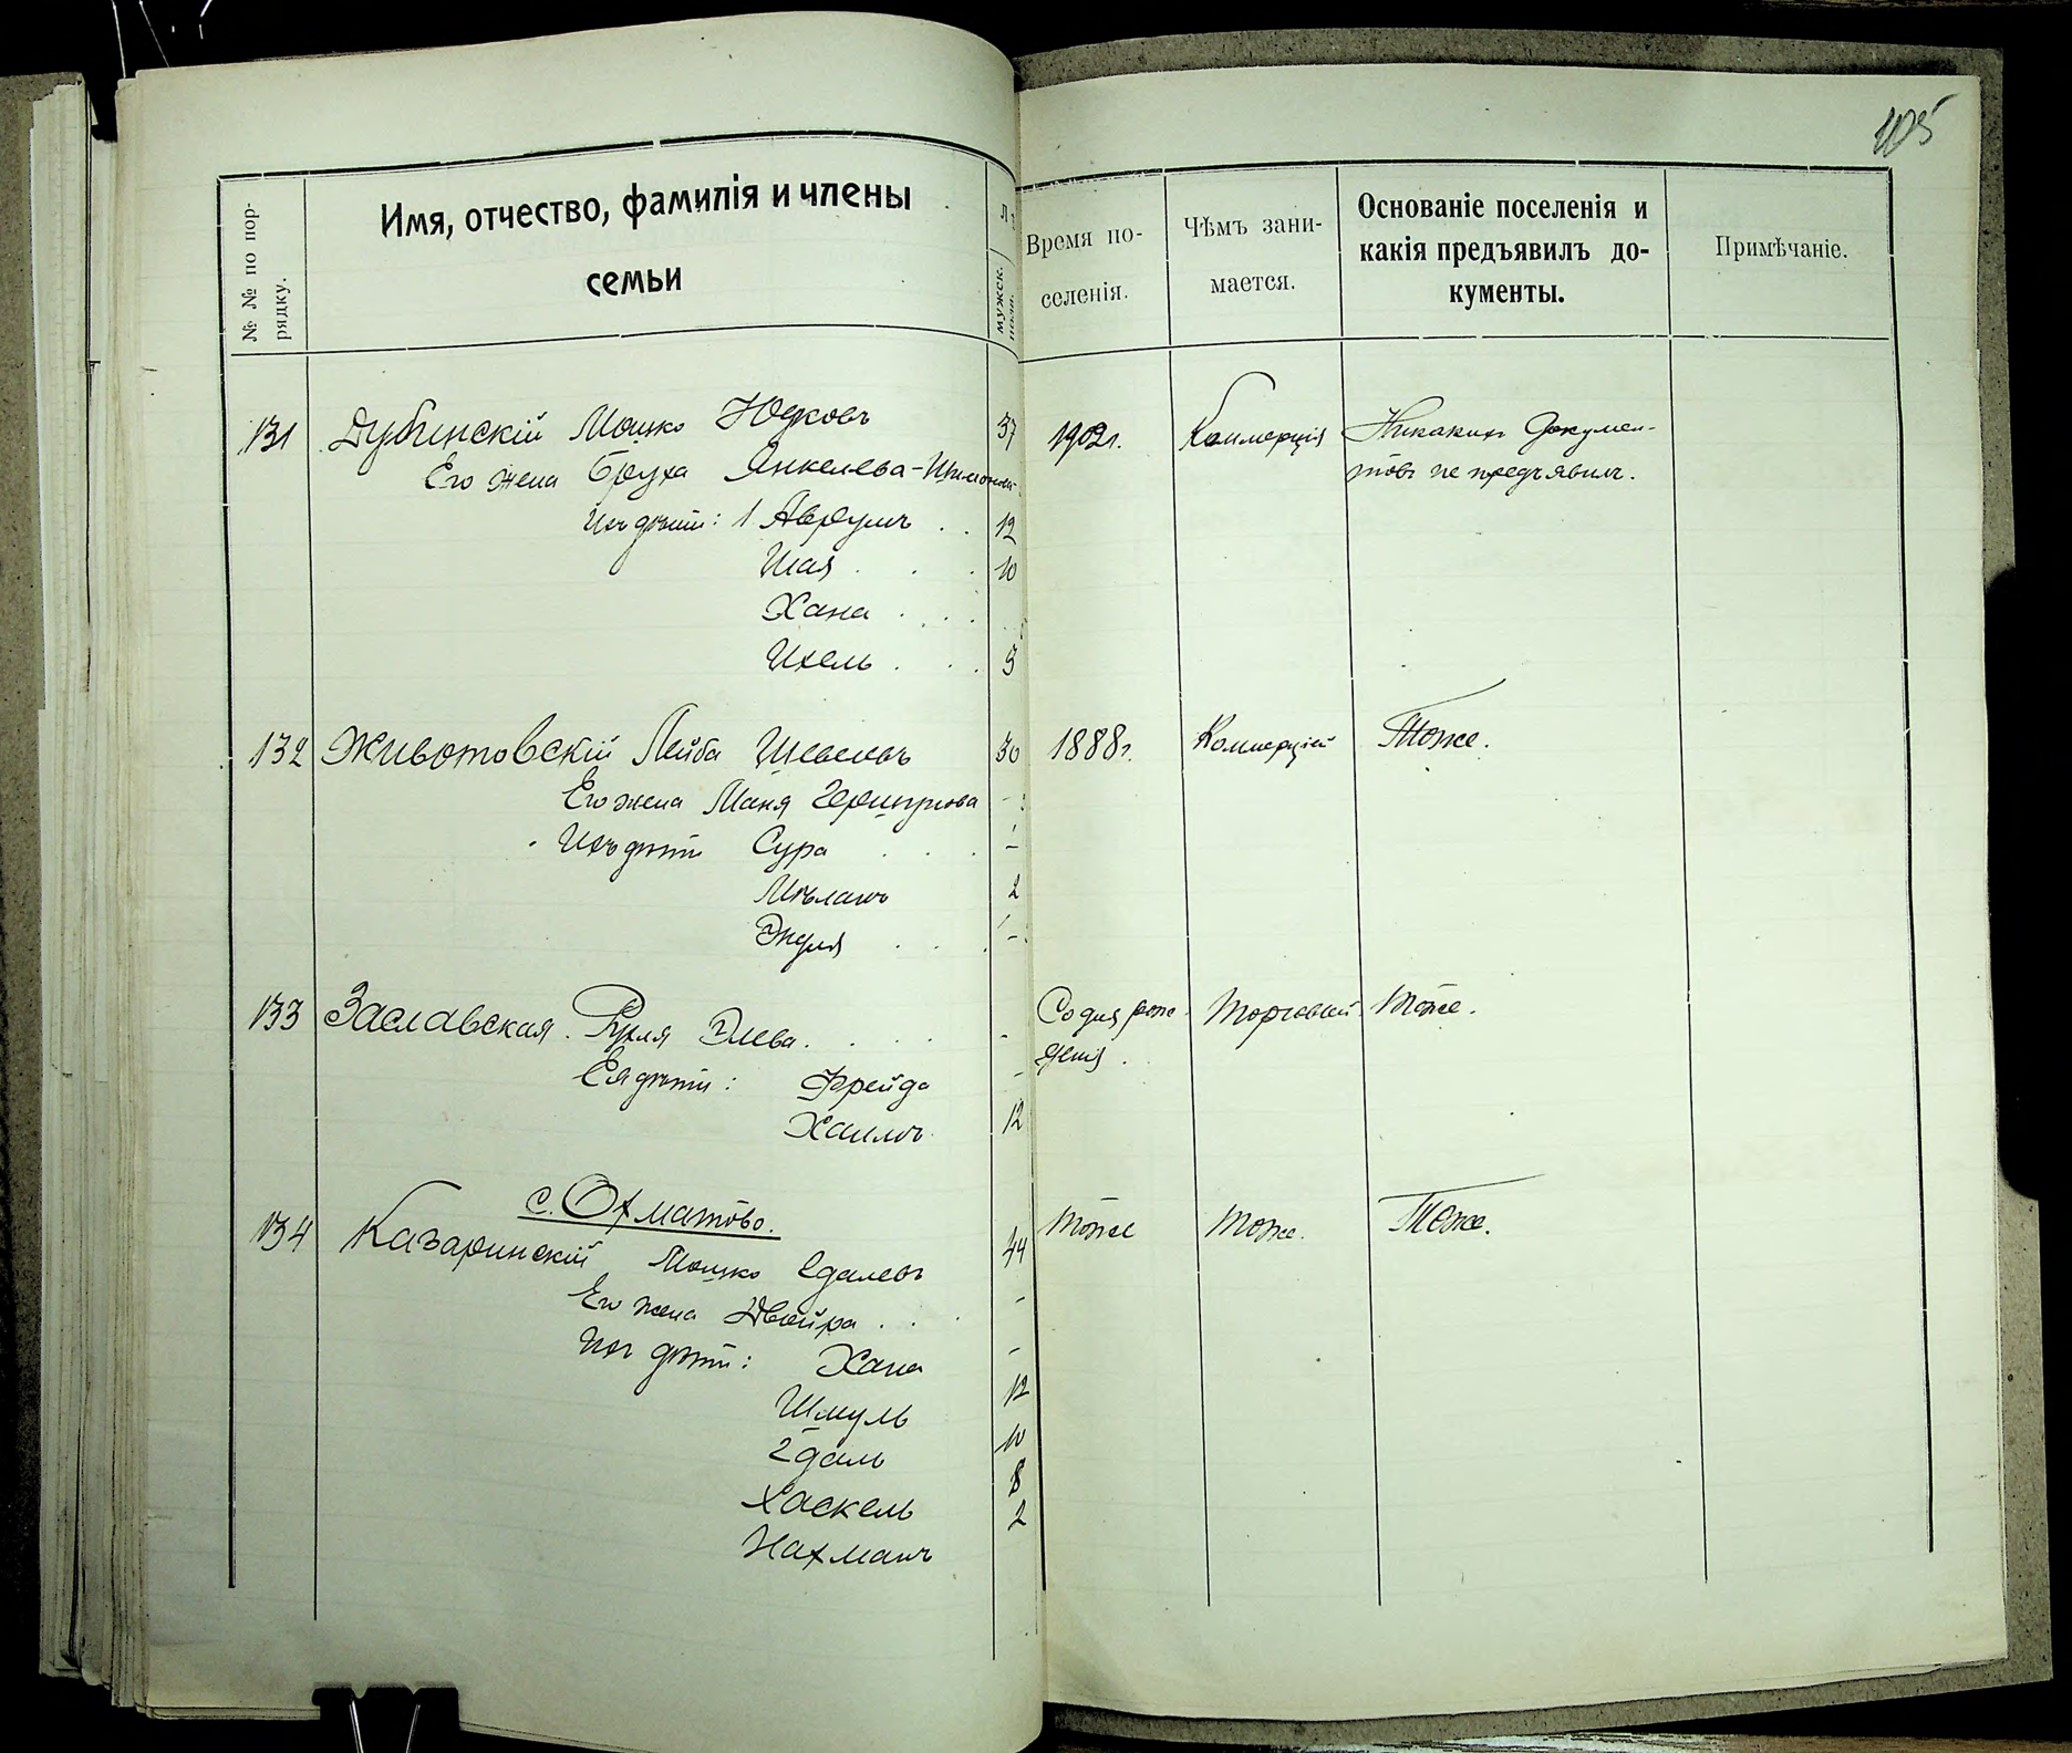 105
№ № по пор-
рядку.
Имя, отчество, фамилія и члены
семьи
мужск.
Время по-
селенія.
Чѣмъ зани-
мается.
Основаніе поселенія и
какія предъявилъ до-
кументы.
Примѣчаніе.
131 Дубинскій Мошко Юдковъ 37 1902г. Коммерція Никакихъ докумен-
Его жена Бруха Янкелева- товъ не предъявилъ.
Ихъ дѣти: 1 Аврумъ . . 12
Шая . . . 10
Хана . . . .
Ихель . . . 5
132 Животовскій Лейба 30 1888г. Коммерціей Тоже.
Его жена Маня -
Ихъ дѣти Сура . . . -
2
. . . -
133 Заславская Рухля Элева . . . . - Со дня рож- Торговлей Тоже.
Ея дѣти: Фрейда - денія.
Хаимъ 12
с. Охматово.
134 Казаринскій Мошко Гдалевъ 44 Тоже Тоже. Тоже.
Его жена Двойра . . . -
Ихъ дѣти: Хана -
Шмуль 12
Гдаль 10
Хаскель 8
Нахманъ 2